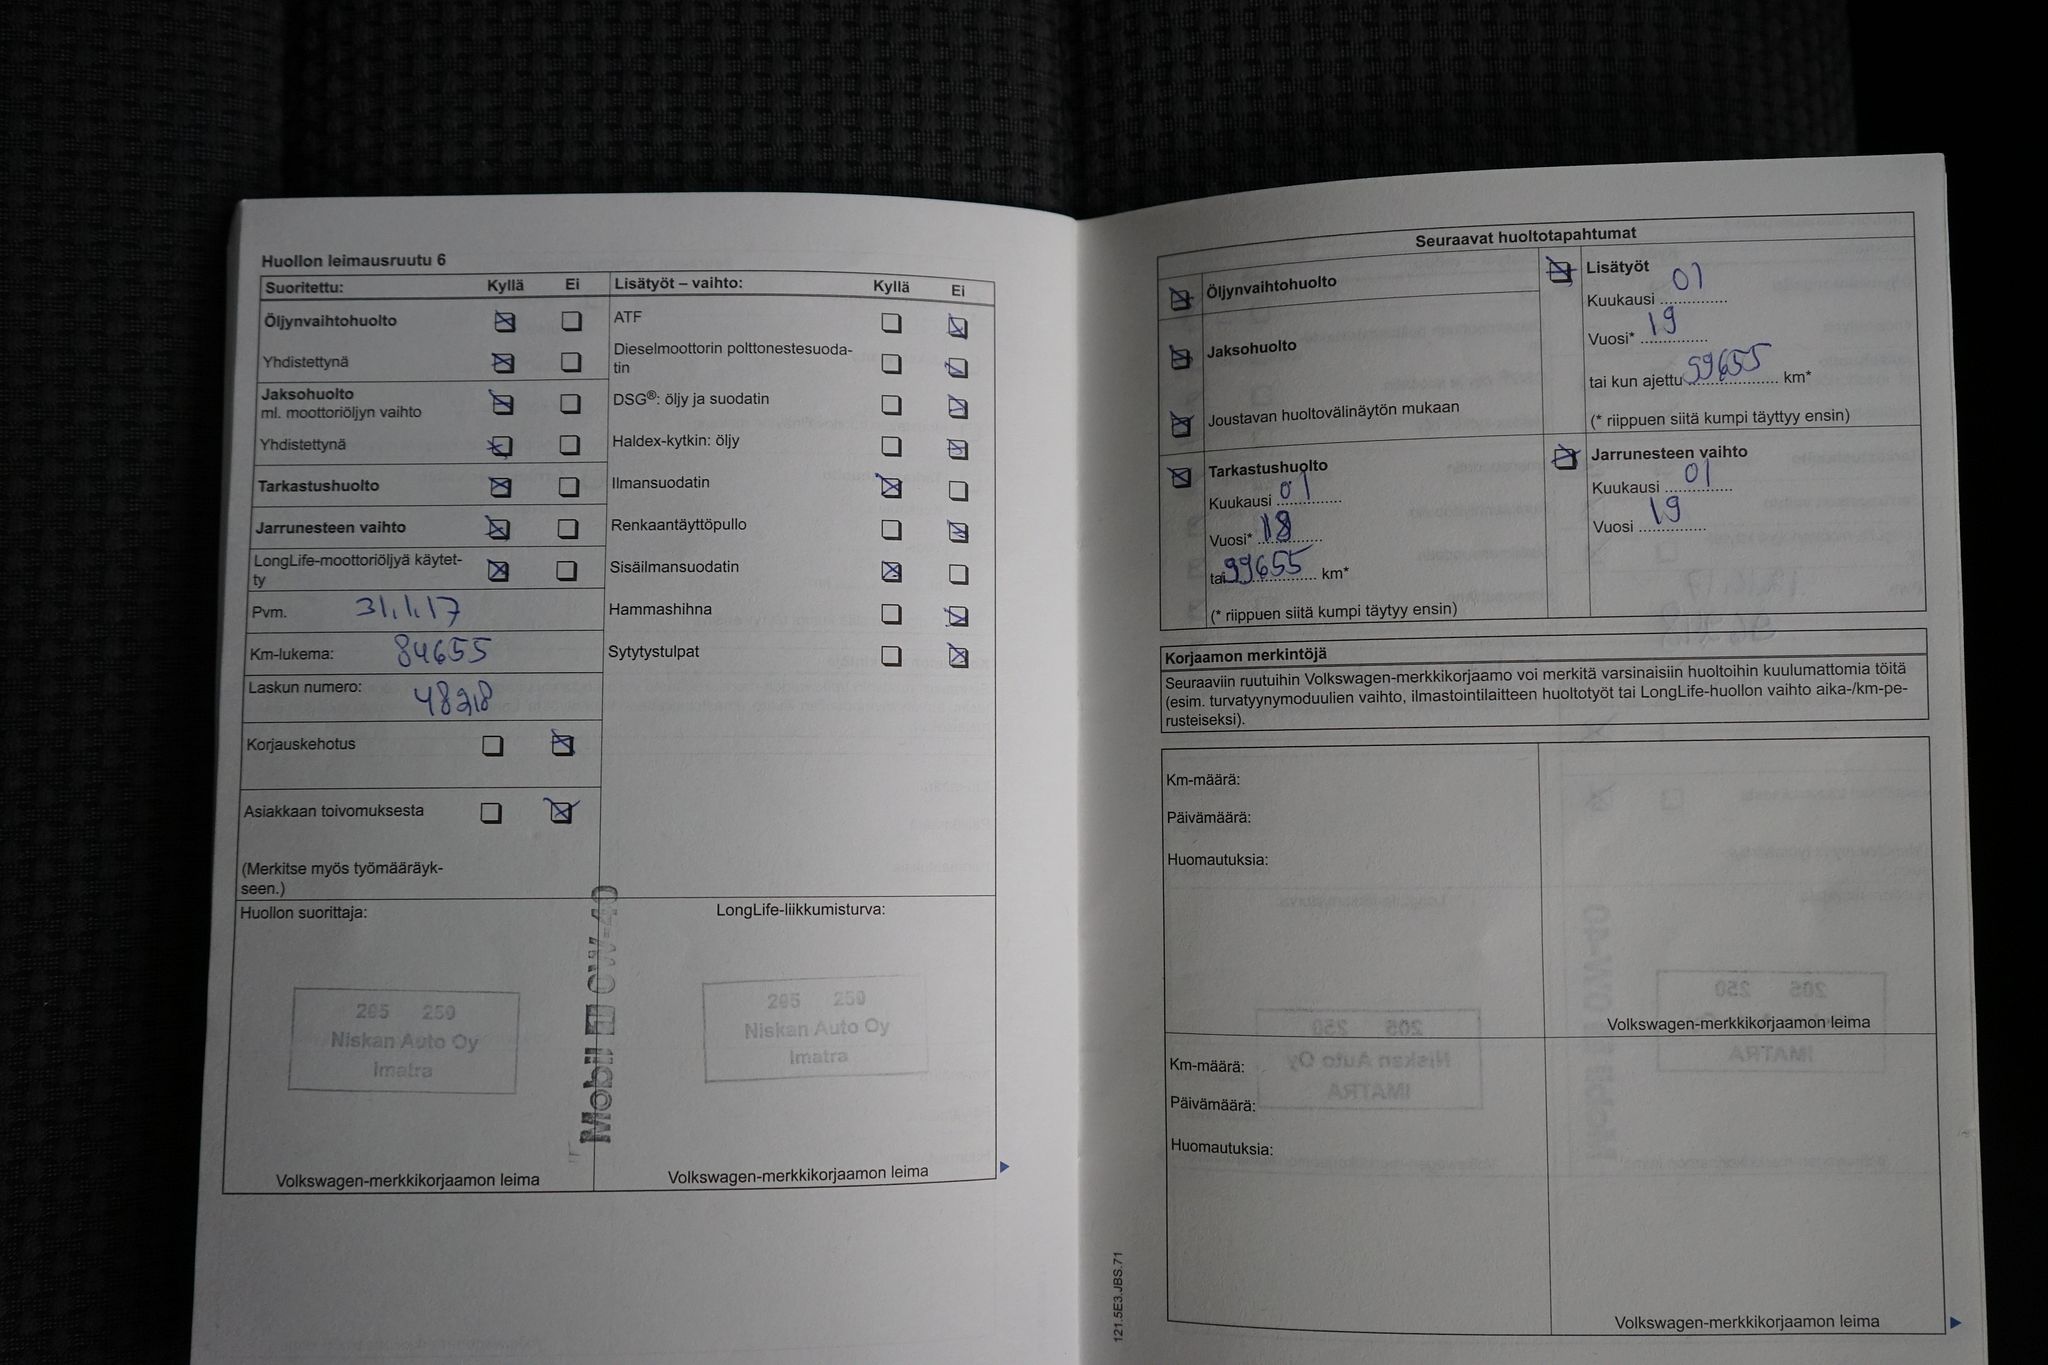 Huollon leimausruutu 6
Suoritettu: Kyllä Ei
Öljynvaihtohuolto
Yhdistettynä
Jaksohuolto
ml. moottoriöljyn vaihto
Yhdistettynä
Tarkastushuolto
Jarrunesteen vaihto
LongLife-moottoriöljyä käytet-
ty
Pvm. 31.1.17
Km-lukema: 84655
Laskun numero: 48218
Korjauskehotus
Asiakkaan toivomuksesta
(Merkitse myös työmääräyk-
seen.)
Lisätyöt – vaihto: Kyllä Ei
ATF
Dieselmoottorin polttonestesuoda-
tin
DSG®: öljy ja suodatin
Haldex-kytkin: öljy
Ilmansuodatin
Renkaantäyttöpullo
Sisäilmansuodatin
Hammashihna
Sytytystulpat
Huollon suorittaja:
205 250
Niskan Auto Oy
Imatra
Volkswagen-merkkikorjaamon leima
Mobil 1 0W-40
LongLife-liikkumisturva:
205 250
Niskan Auto Oy
Imatra
Volkswagen-merkkikorjaamon leima
Seuraavat huoltotapahtumat
Öljynvaihtohuolto
Jaksohuolto
Joustavan huoltovälinäytön mukaan
Tarkastushuolto
Kuukausi 01
Vuosi* 18
tai 99655 km*
(* riippuen siitä kumpi täytyy ensin)
Lisätyöt
Kuukausi 01
Vuosi* 19
tai kun ajettu 99655 km*
(* riippuen siitä kumpi täyttyy ensin)
Jarrunesteen vaihto
Kuukausi 01
Vuosi 19
Korjaamon merkintöjä
Seuraaviin ruutuihin Volkswagen-merkkikorjaamo voi merkitä varsinaisiin huoltoihin kuulumattomia töitä
(esim. turvatyynymoduulien vaihto, ilmastointilaitteen huoltotyöt tai LongLife-huollon vaihto aika-/km-pe-
rusteiseksi).
Km-määrä:
Päivämäärä:
Huomautuksia:
Volkswagen-merkkikorjaamon leima
Km-määrä:
Päivämäärä:
Huomautuksia:
Volkswagen-merkkikorjaamon leima
121.5E3.JBS.71